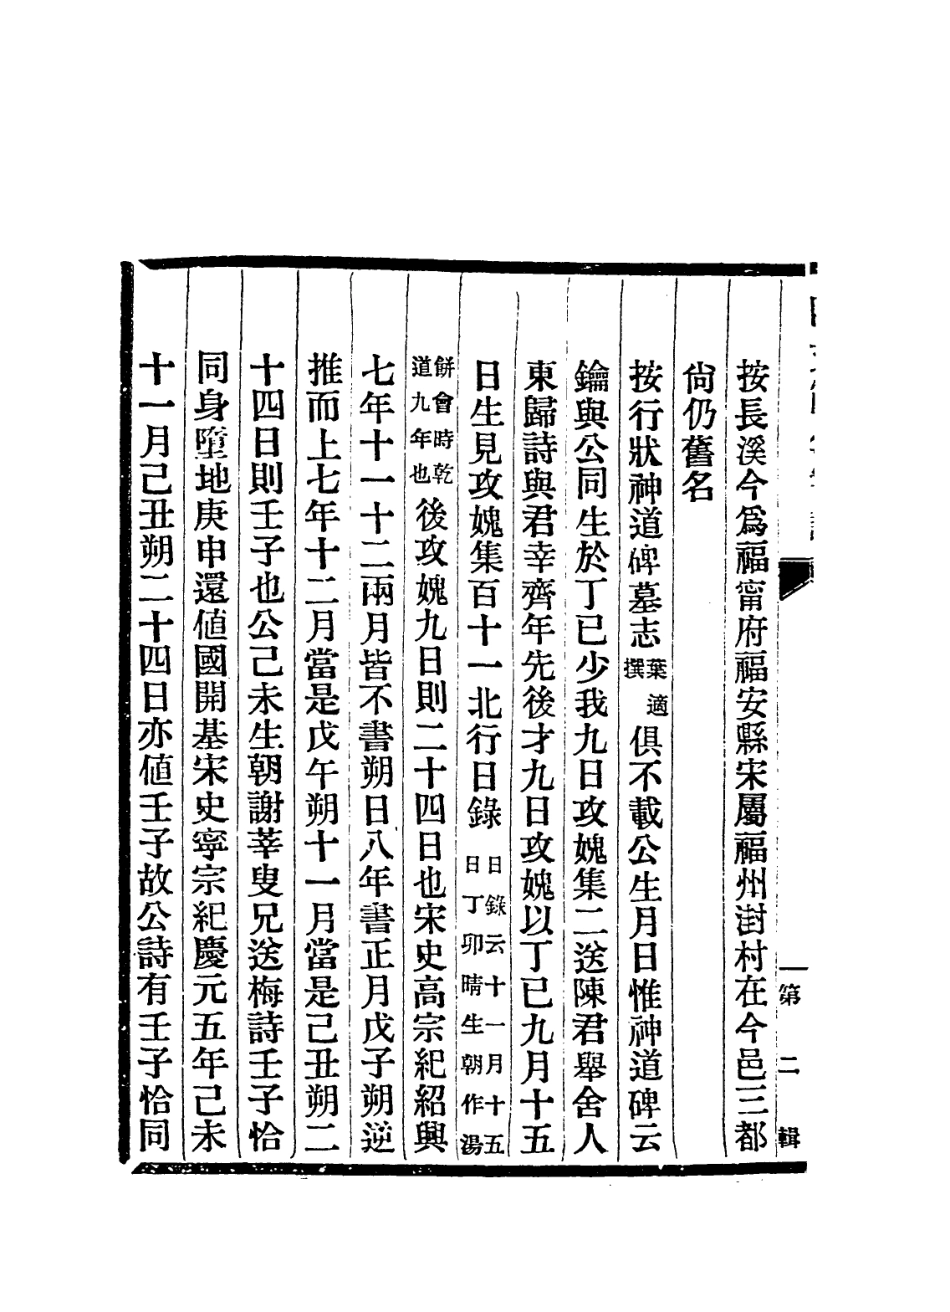 第二輯
按長溪今爲福甯府福安縣宋屬福州澍村在今邑三都
尙仍舊名
按行狀神道碑墓志葉適撰俱不載公生月日惟神道碑云
鑰與公同生於丁巳少我九日攻媿集二送陳君舉舍人
東歸詩與君幸齊年先後才九日攻媿以丁巳九月十五
日生見攻媿集百十一北行日錄日錄云十一月十五日丁卯晴生朝作湯
餠會時乾道九年也後攻媿九日則二十四日也宋史高宗紀紹興
七年十一十二兩月皆不書朔日八年書正月戊子朔逆
推而上七年十二月當是戊午朔十一月當是己丑朔二
十四日則壬子也公己未生朝謝莘叟兄送梅詩壬子恰
同身墮地庚申還値國開基宋史寧宗紀慶元五年己未
十一月己丑朔二十四日亦値壬子故公詩有壬子恰同